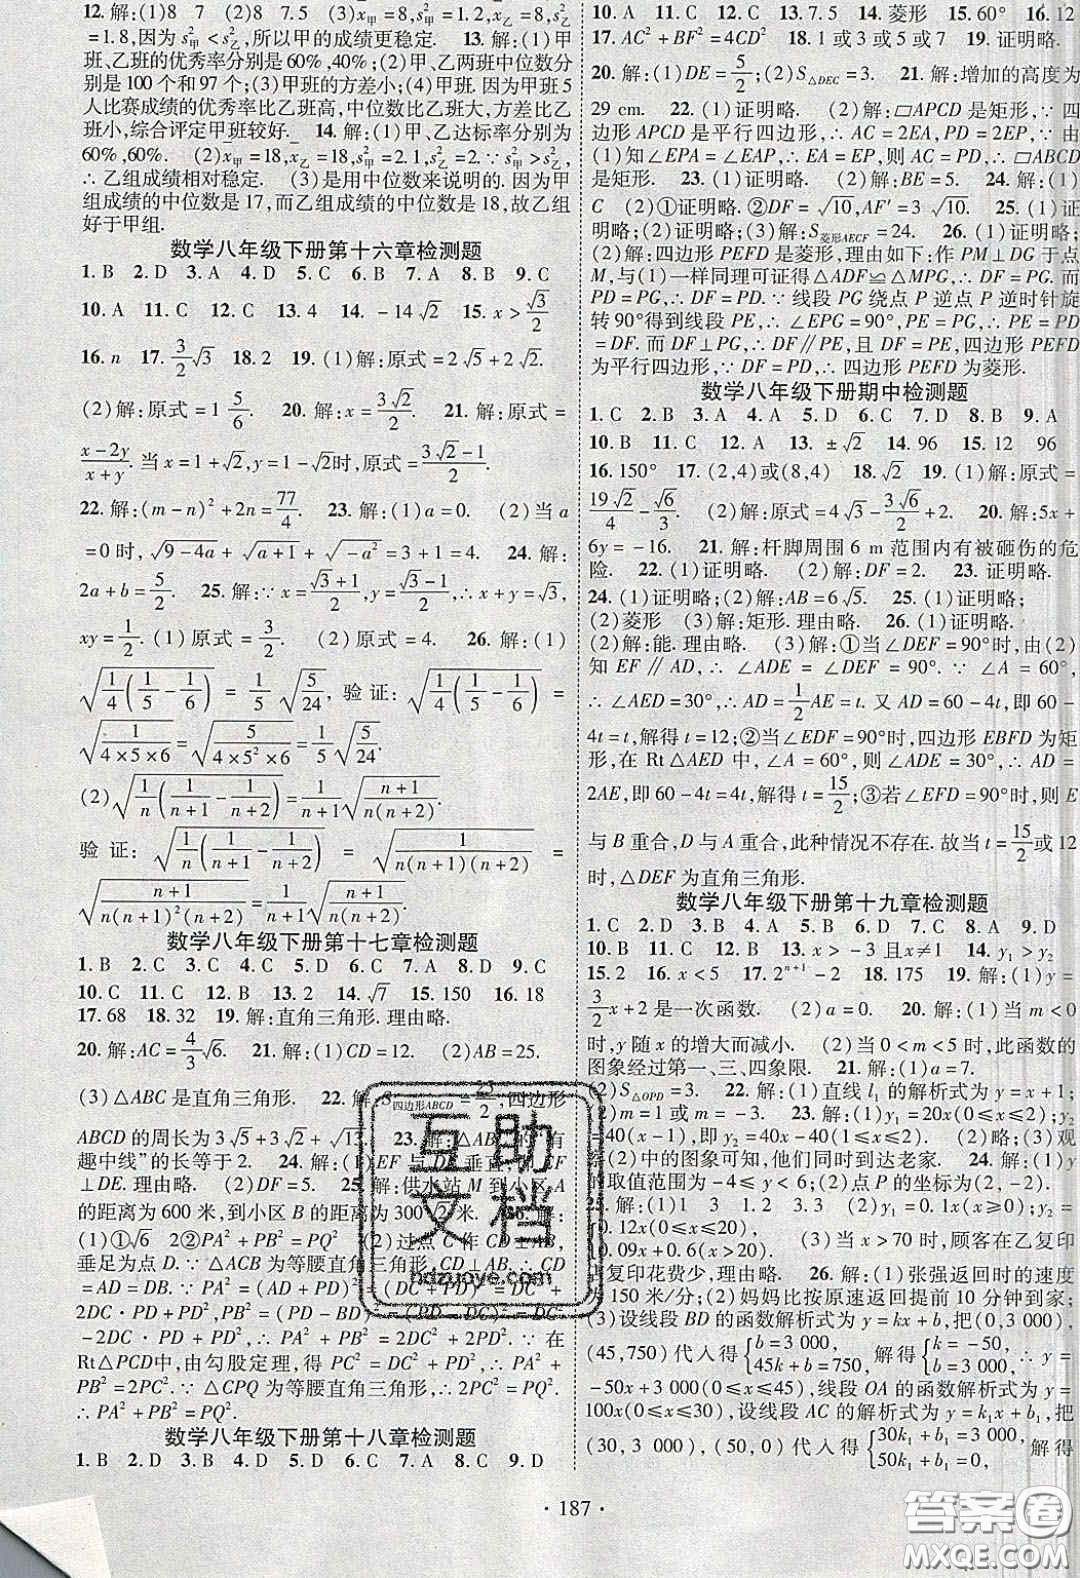 12.解:(1)8 7 (2)8 7.5 (3)x̄甲=8,s²甲=1.2,x̄乙=8,s²乙
=1.8,因为s²甲<s²乙,所以甲的成绩更稳定. 13.解:(1)甲
班、乙班的优秀率分别是60%,40%;(2)甲、乙两班中位数分
别是100个和97个;(3)甲班的方差小;(4)甲班定为冠军.因为甲班5
人比赛成绩的优秀率比乙班高,中位数比乙班大,方差比乙班
小,综合评定甲班较好. 14.解:(1)甲、乙达标率分别为
60%,60%. (2)x̄甲=18,x̄乙=18,s²甲=2.1,s²乙=2.∵s²甲>s²乙,
∴乙组成绩相对稳定. (3)是用中位数来说明的.因为甲
组成绩的中位数是17,而乙组成绩的中位数是18,故乙组
好于甲组.
数学八年级下册第十六章检测题
1.B 2.D 3.A 4.D 5.C 6.B 7.A 8.B 9.C
10.A 11.C 12.C 13.4 14.-14√2 15.x>√3/2
16.n 17.3/2√3 18.2 19.(1)解:原式=2√5+2√2.
(2)解:原式=1 5/6. 20.解:x=3√2/2. 21.解:原式=
(x-2y)/(x+y).当x=1+√2,y=1-√2时,原式=(3√2-1)/2.
22.解:(m-n)²+2n=77/4. 23.解:(1)a=0. (2)当a
=0时,√(9-4a)+√(a+1)+√(-a²)=3+1=4. 24.解:
2a+b=5/2. 25.解:∵x=(√3+1)/2,y=(√3-1)/2,∴x+y=√3,
xy=1/2.(1)原式=3/2. (2)原式=4. 26.解:(1)
√(1/4(1/5-1/6))=1/5√(5/24),验证:√(1/4(1/5-1/6))=
√(1/(4×5×6))=√(5/(4×5²×6))=1/5√(5/24).
(2)√(1/n(1/(n+1)-1/(n+2)))=1/(n+1)√((n+1)/(n(n+2))).
验证:√(1/n(1/(n+1)-1/(n+2)))=√(1/(n(n+1)(n+2)))=
√((n+1)/(n(n+1)²(n+2)))=1/(n+1)√((n+1)/(n(n+2))).
数学八年级下册第十七章检测题
1.B 2.C 3.C 4.D 5.D 6.C 7.A 8.D 9.C
10.C 11.C 12.B 13.2 14.√7 15.150 16.18
17.68 18.32 19.解:直角三角形.理由略.
20.解:AC=4/3√6. 21.解:(1)CD=12. (2)AB=25.
(3)△ABC是直角三角形. 22.解:S四边形ABCD=/2;四边形
ABCD的周长为3√5+3√2+√13. 23.解:△AB的“有
趣中线”的长等于2. 24.解:(1)EF与DE垂直,即EF
⊥DE.理由略. (2)DF=5. 25.解:供水站M到小区A
的距离为600米,到小区B的距离为300√2米. 26.解:
(1)①√6 2②PA²+PB²=PQ² (2)过点C作CD⊥AB,
垂足为点D.∵△ACB为等腰直角三角形,CD⊥AB.∴CD
=AD=DB.∵PA²=(AD+PD)²=(DC+PD)²=DC²+
2DC·PD+PD²,PB²=(PD-BD)²=(PD-DC)²=DC²
-2DC·PD+PD²,∴PA²+PB²=2DC²+2PD².∵在
Rt△PCD中,由勾股定理,得PC²=DC²+PD²,∴PA²+
PB²=2PC².∵△CPQ为等腰直角三角形,∴2PC²=PQ².
∴PA²+PB²=PQ².
数学八年级下册第十八章检测题
1.B 2.D 3.B 4.D 5.D 6.B 7.D 8.C 9.D
10.A 11.C 12.C 13.4 14.菱形 15.60° 16.12
17.AC²+BF²=4CD² 18.1或3或5或7 19.证明略.
20.解:(1)DE=5/2;(2)S△DEC=3. 21.解:增加的高度为
29 cm. 22.(1)证明略. (2)解:▱APCD是矩形,∵四
边形APCD是平行四边形,∴AC=2EA,PD=2EP,∵由
(1)知∠EPA=∠EAP,∴EA=EP,则AC=PD,∴▱ABCD
是矩形. 23.(1)证明略. (2)解:BE=5. 24.解:(1)
C (2)①证明略.②DF=√10,AF'=3√10. 25.(1)
证明略. (2)解:S菱形AECF=24. 26.(1)证明略.
(2)解:四边形PEFD是菱形,理由如下:作PM⊥DG于点
M,与(1)一样同理可证得△ADF≌△MPG,∴DF=PG.而
PD=PG,∴DF=PD.∵线段PG绕点P逆点P逆时针旋
转90°得到线段PE,∴∠EPG=90°,PE=PG,∴PE=PD
=DF.而DF⊥PG,∴DF∥PE,且DF=PE,四边形PEFD
为平行四边形,∵DF=PD,∴四边形PEFD为菱形.
数学八年级下册期中检测题
1.C 2.B 3.A 4.A 5.D 6.C 7.D 8.B 9.A
10.B 11.C 12.A 13.±√2 14.96 15.12 96
16.150° 17.(2,4)或(8,4) 18.√2 19.(1)解:原式=
19√2/4-√6/3. (2)解:原式=4√3-3√6/2+2. 20.解:5x+
6y=-16. 21.解:杆脚周围6 m范围内有被砸伤的危
险. 22.(1)证明略. (2)解:DF=2. 23.证明略.
24.(1)证明略;(2)解:AB=6√5. 25.(1)证明略;
(2)菱形 (3)解:矩形.理由略. 26.(1)证明略;
(2)解:能.理由略. (3)解:①当∠DEF=90°时,由(2)
知EF∥AD,∴∠ADE=∠DEF=90°.∵∠A=60°,
∴∠AED=30°,∴AD=1/2AE=t.又AD=60-4t,即60-
4t=t,解得t=12;②当∠EDF=90°时,四边形EBFD为矩
形,在Rt△AED中,∠A=60°,则∠ADE=30°,∴AD=
2AE,即60-4t=4t,解得t=15/2;③若∠EFD=90°时,则E
与B重合,D与A重合,此种情况不存在.故当t=15/2或12
时,△DEF为直角三角形.
数学八年级下册第十九章检测题
1.C 2.D 3.D 4.A 5.B 6.D 7.C 8.A 9.D
10.B 11.C 12.B 13.x>-3且x≠1 14.y₁>y₂
15.2 16.x<5 17.2ⁿ⁺¹-2 18.175 19.解:(1)y=
3/2x+2是一次函数. (2)a=0. 20.解:(1)当m<0
时,y随x的增大而减小. (2)当0<m<5时,此函数的
图象经过第一、三、四象限. 21.解:(1)a=7.
(2)S△OPD=3. 22.解:(1)直线l₁的解析式为y=x+1;
(2)m=1. 23.解:(1)y₁=20x(0≤x≤2);y₂
=40(x-1),即y₂=40x-40(1≤x≤2). (2)略;(3)观
察(2)中的图象可知,他们同时到达老家. 24.解:(1)y
的取值范围是-4≤y<6;(2)点P的坐标为(2,-2).
25.解:(1)1 1.2 3 3.3 (2)
0.12x(0≤x≤20)
0.09x+0.6(x>20). (3)当x>70时,顾客在乙复印
店复印花费少,理由略. 26.解:(1)张强返回时的速度
为150米/分;(2)妈妈比按原速返回提前10分钟到家;
(3)设线段BD的函数解析式为y=kx+b,把(0,3 000),
(45,750)代入得{b=3 000,45k+b=750,解得{k=-50,b=3 000,∴y=
-50x+3 000(0≤x≤45),线段OA的函数解析式为y=
100x(0≤x≤30),设线段AC的解析式为y=k₁x+b₁,把
(30,3 000),(50,0)代入得{30k₁+b₁=3 000,50k₁+b₁=0,解得
· 187 ·
互助
文档
hdzuoye.com
答案圈
MXQE.COM